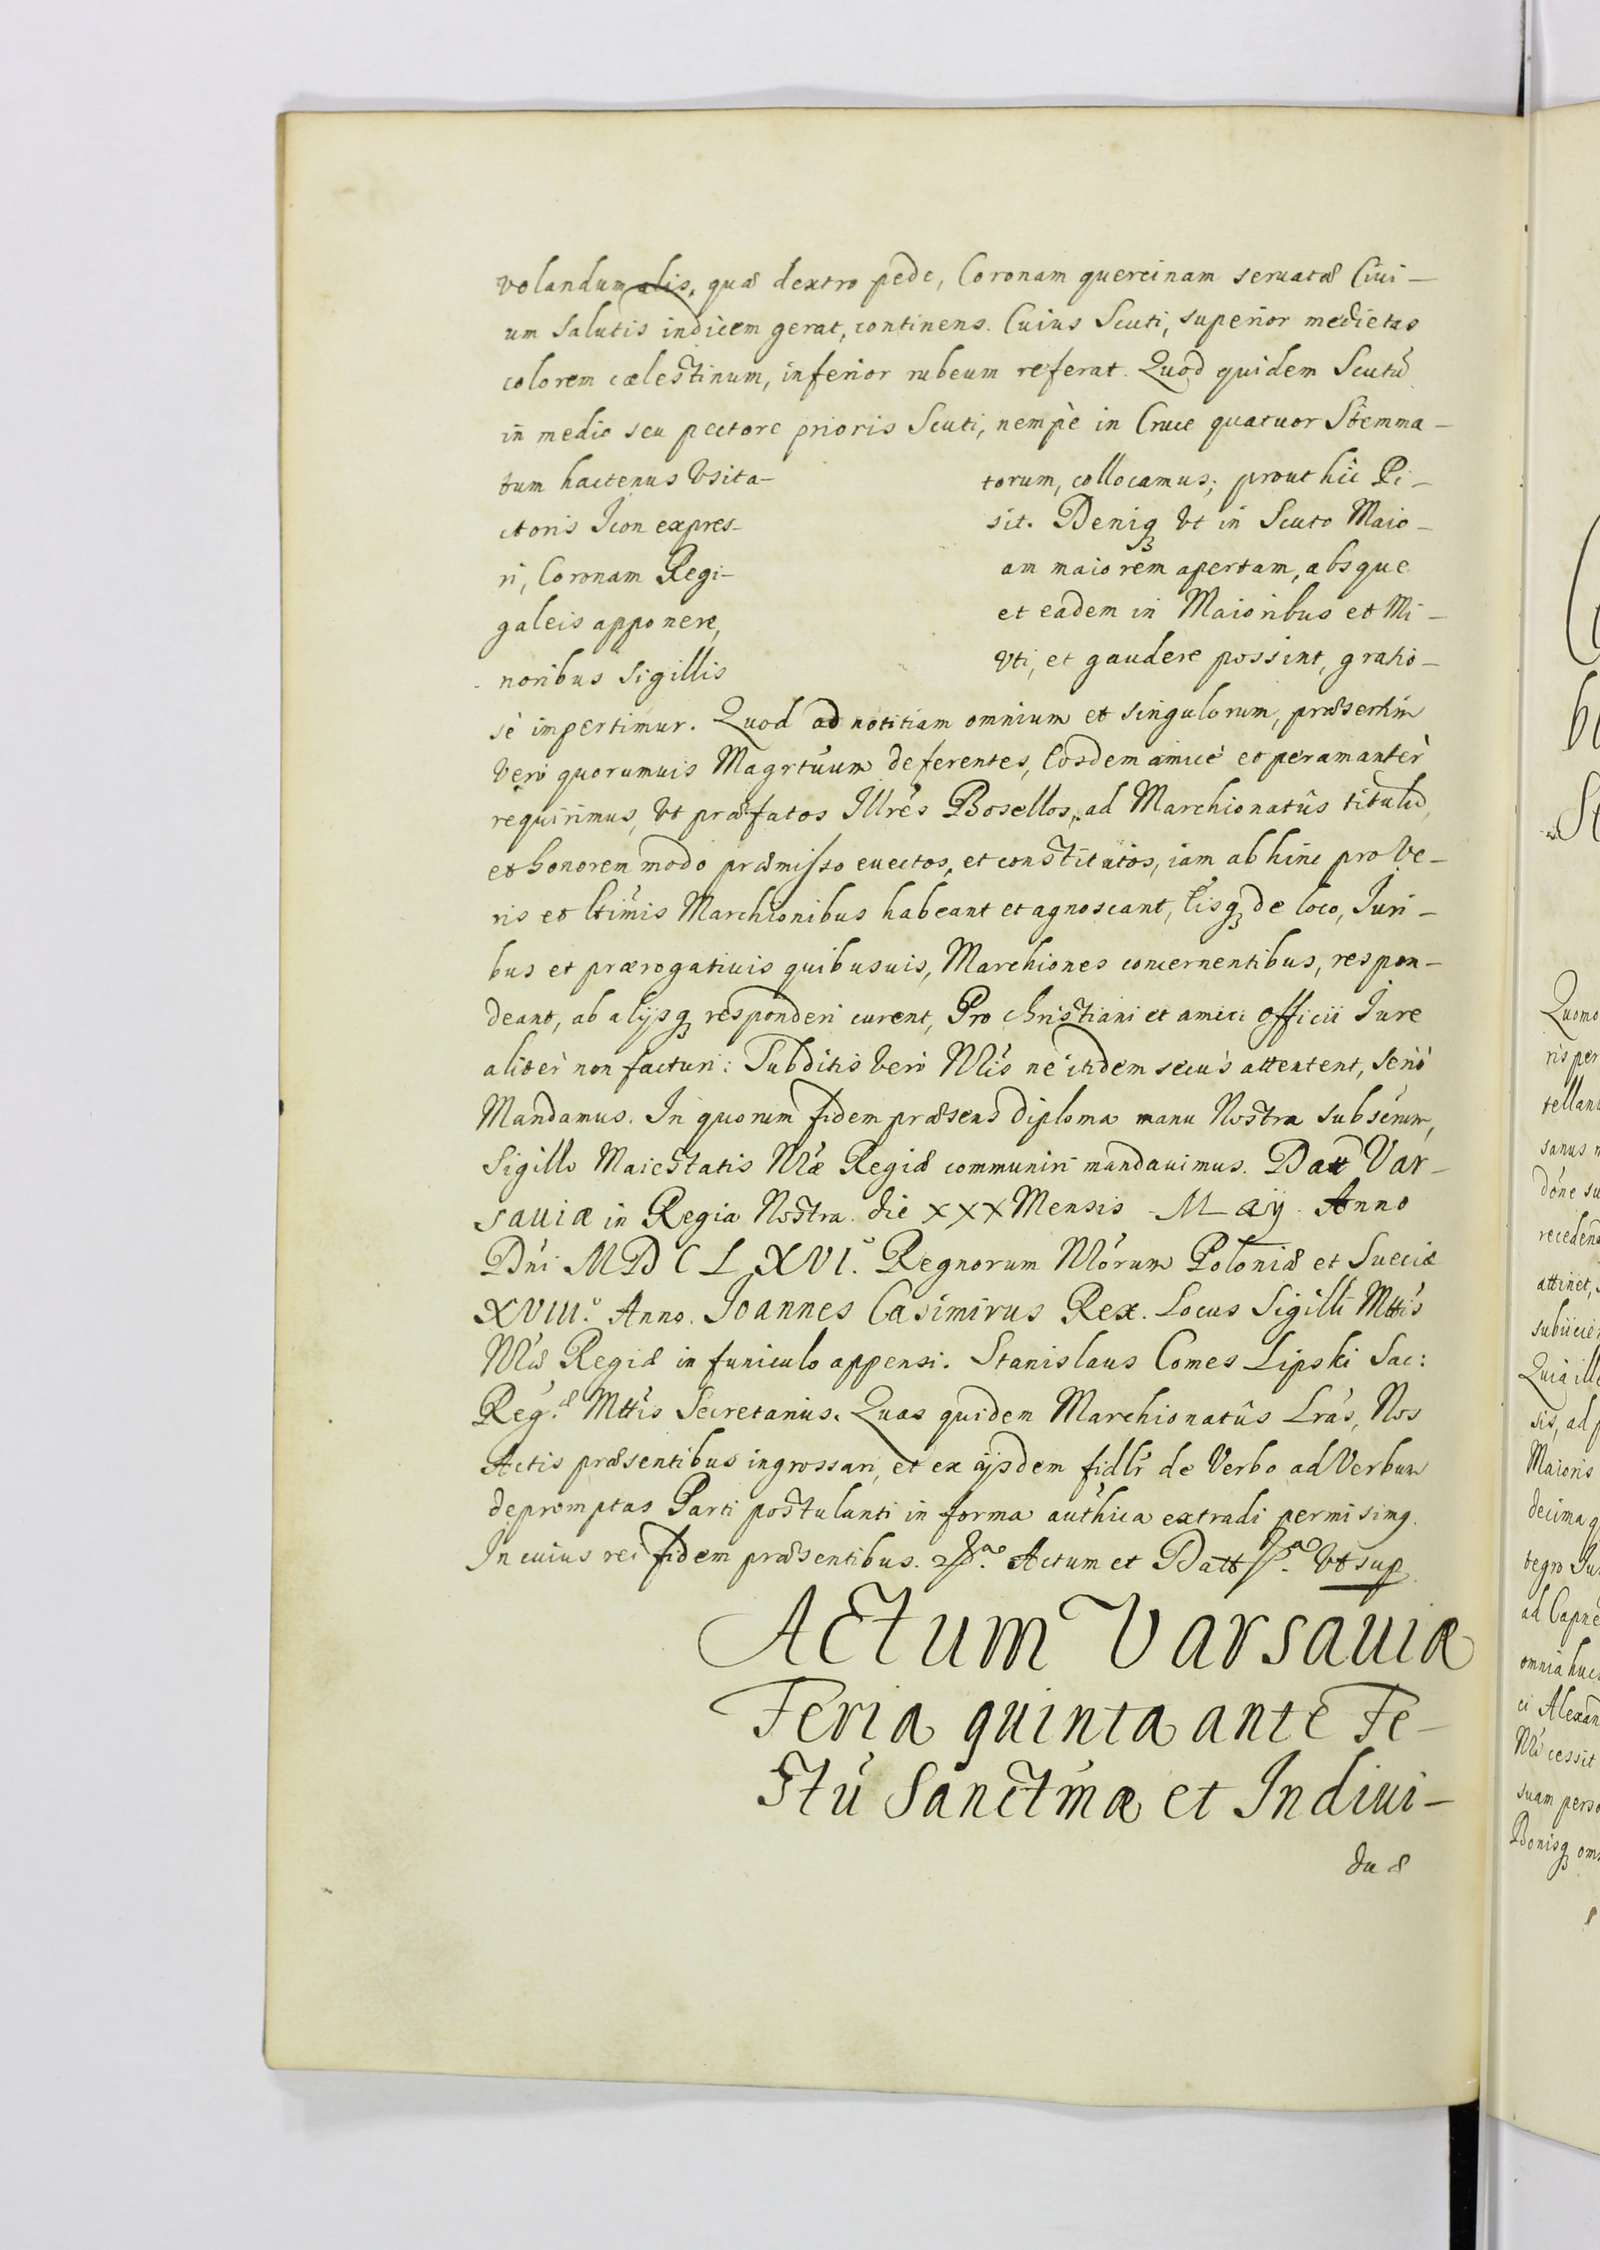 volandum alis, quæ dextro pede, Coronam quercinam seruatæ Ciui-
um Salutis indicem gerat, continens. Cuius Scuti, superior medietas
colorem cælestinum, inferior rubeum referat. Quod quidem Scutũ
in medio seu pectore prioris Scuti, nempè in Cruce quatuor Stemma-
tum hactenus Vsita- torum, collocamus; prout hic Pi-
ctoris Icon expres- sit. Deniq3 Vt in Scuto Maio-
ri, Coronam Regi- am maiorem apertam, absque
galeis apponere, et eadem in Maioribus et Mi-
noribus Sigillis Vti, et gaudere possint, gratio-
sè impertimur. Quod ad notitiam omnium et singulorum, præsertim
Verò quorumuis Magrtũum deferentes, Eosdem amicè et peramantèr
requirimus, Vt præfatos Illrés Bosellos, ad Marchionatûs titulũ,
et honorem modo præmisso euectos, et constitutos, iam ab hinc pro Ve-
ris et Ltimis Marchionibus habeant et agnoscant, Eisq3 de loco, Juri-
bus et prærogatiuis quibusuis, Marchiones concernentibus, respon-
deant, ab alijsq3 responderi curent, Pro christiani et amici officii Jure
alitèr non facturi: Subditis Verò Nris ne itidem secùs attentent, seriò
Mandamus. In quorum fidem præsens diploma manu Nostra subscrum,
Sigillo Maiestatis Nræ Regiæ communiri mandauimus. Datt Var-
sauiæ in Regia Nostra. die XXX Mensis Maÿ Anno
Dni MDCLXVI.º Regnorum Nrórum Poloniæ et Sueciæ
XVIII.º Anno. Joannes Casimirus Rex. Locus Sigilli Mttis
Nræ Regiæ in funiculo appensi. Stanislaus Comes Lipski Sac:
Reg.æ Mttis Secretarius. Quas quidem Marchionatûs Lrás, Nos
Actis præsentibus ingrossari, et ex ijsdem fidlr de Verbo ad Verbum
depromptas Parti postulanti in forma authica extradi permisimq.
In cuius rei fidem præsentibus. Actum et Datt Vt sup
Actum Varsauiæ
Feria quinta ante Fe-
stũ Sanctmæ et Indiui-
duæ